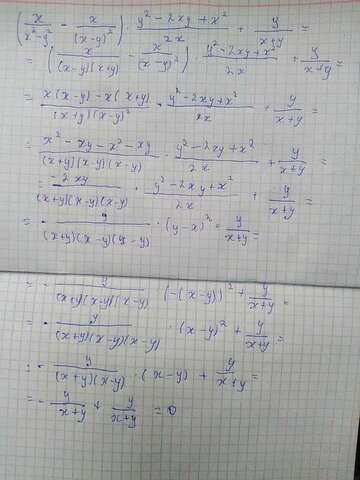 (x/(x²-y²) - x/(x-y)²) · (y²-2xy+x²)/2x + y/(x+y) =
= (x/((x-y)(x+y)) - x/(x-y)²) · (y²-2xy+x²)/2x + y/(x+y) =
= (x(x-y)-x(x+y))/((x+y)(x-y)²) · (y²-2xy+x²)/2x + y/(x+y) =
= (x²-xy-x²-xy)/((x+y)(x-y)(x-y)) · (y²-2xy+x²)/2x + y/(x+y) =
= -2xy/((x+y)(x-y)(x-y)) · (y²-2xy+x²)/2x + y/(x+y) =
= - y/((x+y)(x-y)(x-y)) · (y-x)² + y/(x+y) =
= - y/((x+y)(x-y)(x-y)) · (-(x-y))² + y/(x+y) =
= - y/((x+y)(x-y)(x-y)) · (x-y)² + y/(x+y) =
= - y/((x+y)(x-y)) · (x-y) + y/(x+y) =
= - y/(x+y) + y/(x+y) = 0